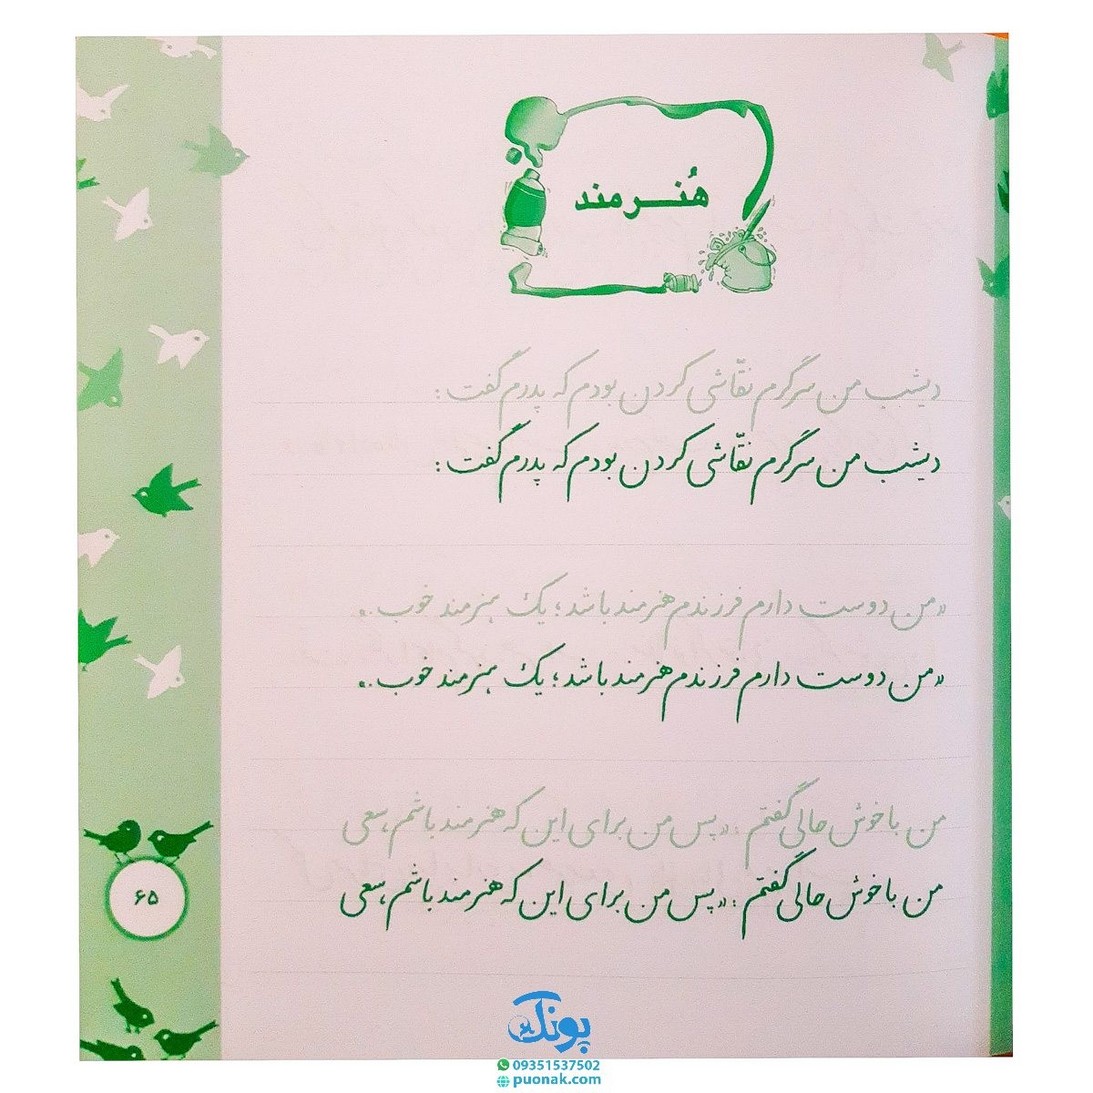 هُنرمند
دیشب من سرگرم نقّاشی کردن بودم که پدرم گفت :
دیشب من سرگرم نقّاشی کردن بودم که پدرم گفت :
«من دوست دارم فرزندم هنرمند باشد؛ یک هنرمند خوب.»
«من دوست دارم فرزندم هنرمند باشد؛ یک هنرمند خوب.»
من با خوش حالی گفتم : «پس من برای این که هنرمند باشم، سعی
من با خوش حالی گفتم : «پس من برای این که هنرمند باشم، سعی
۶۵
پونک
09351537502
puonak.com